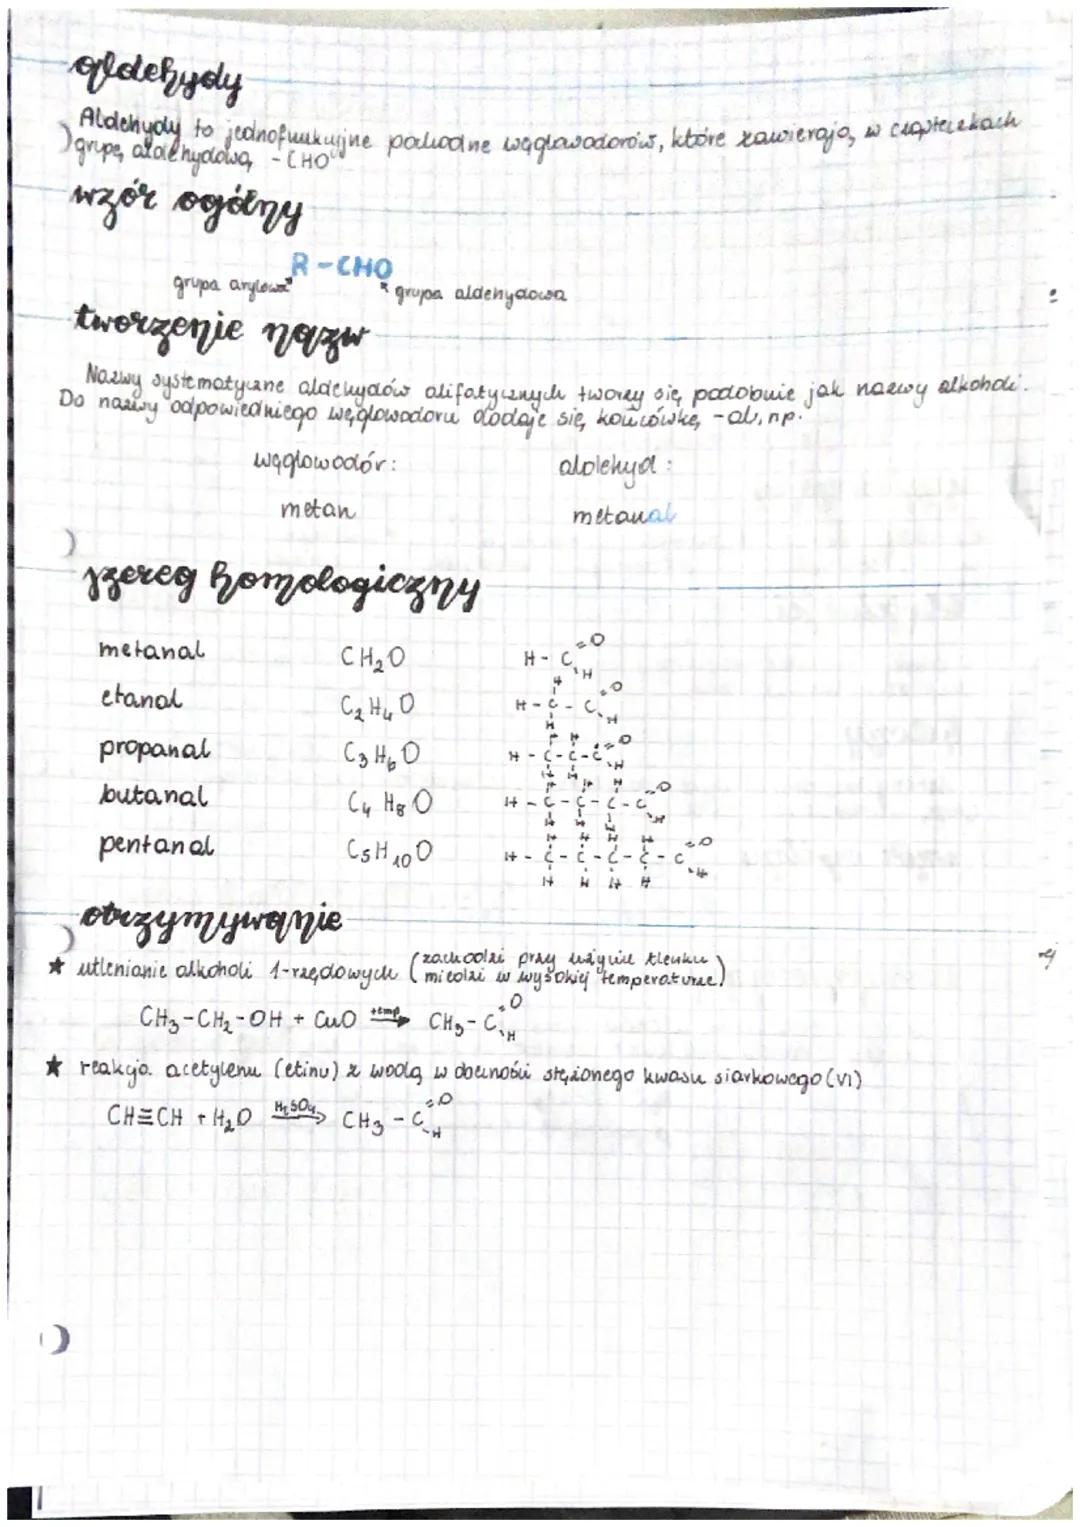 aldehydy
Aldehydy to jednofunkcyjne pochodne węglowodorów, które zawierają, w cząsteczkach
grupę aldehydową -CHO
wzór ogólny
R-CHO
grupa arylowa
grupa aldehydowa
tworzenie nazw
Nazwy systematyczne aldehydów alifatycznych tworzy się podobnie jak nazwy alkoholi.
Do nazwy odpowiedniego węglowodoru dodaje się końcówkę -al, np.
węglowodór: aldehyd:
metan metanal
szereg homologiczny
metanal CH₂O H-C=O H
etanal C₂H₄O H-C-C=O H H H
propanal C₃H₆O H-C-C-C=O H H H H H
butanal C₄H₈O H-C-C-C-C=O H H H H H H H
pentanal C₅H₁₀O H-C-C-C-C-C=O H H H H H H H H H
otrzymywanie
★ utlenianie alkoholi 1-rzędowych (zachodzi przy użyciu tlenku
miedzi w wysokiej temperaturze)
CH₃-CH₂-OH + CuO temp. → CH₃-C=O H
★ reakcja acetylenu (etinu) z wodą w obecności stężonego kwasu siarkowego (VI)
CH≡CH + H₂O H₂SO₄ → CH₃-C=O H